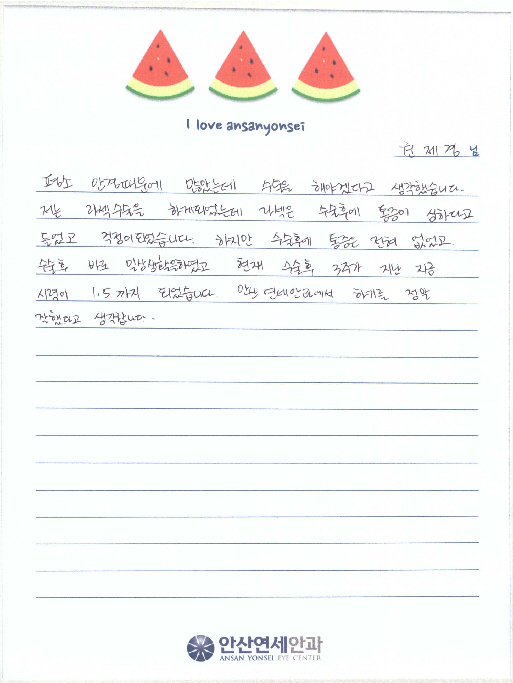 I love ansanyonsei
제경 님
평소 안경때문에 많았는데 수술을 해야겠다고 생각했습니다.
저는 라섹수술을 하게되었는데 라섹은 수술후에 통증이 심하다고
들었고 걱정이되었습니다. 하지만 수술후에 통증은 전혀 없었고
수술후 바로 일상생활을하였고 현재 수술후 3주가 지난 지금
시력이 1.5까지 되었습니다. 안산연세안과에서 하기를 정말
잘했다고 생각합니다.
안산연세안과
ANSAN YONSEI EYE CENTER